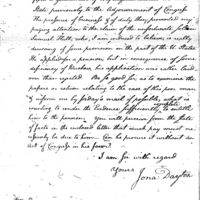 State previously to the Adjournment of Congress
The pressure of business & of duty then, prevented my
paying attention to the claim of the unfortunate soldier
Samuel Scott, who, I am induced to believe, is really
deserving of some provision on the part of the U. States
He applied for a pension, but in consequence of some
deficiency of vouchers, his application was rather laid
over than rejected. Be so good, sir, as to examine the
papers or action relating to the case of this poor man
& inform me by friday's mail if possible, what is
wanting to make the evidence sufficiently complete to entitle
him to the pension. You will perceive from the state
of facts in the inclosed letter that much pay must ne-
cessarily be due to him. Can he procure it without an
act of Congress in his favor?
I am Sir with regard
Yours
Jona: Dayton